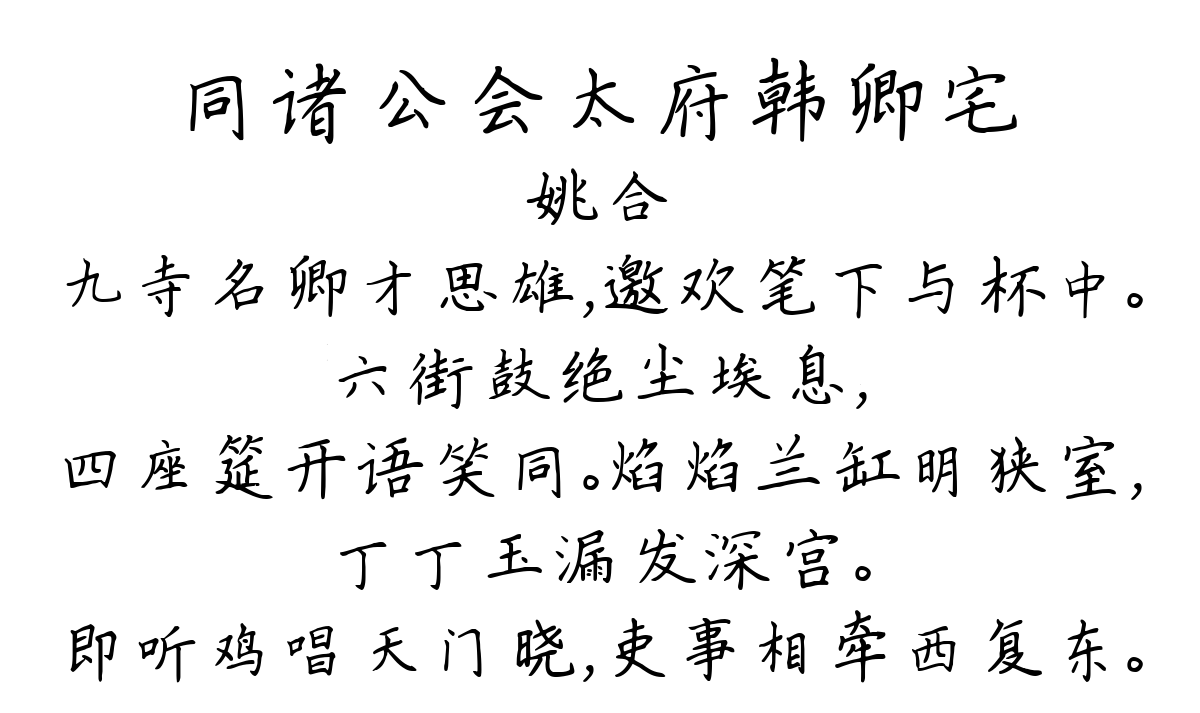 同诸公会太府韩卿宅
姚合
九寺名卿才思雄,邀欢笔下与杯中。
六街鼓绝尘埃息,
四座筵开语笑同。焰焰兰缸明狭室,
丁丁玉漏发深宫。
即听鸡唱天门晓,吏事相牵西复东。